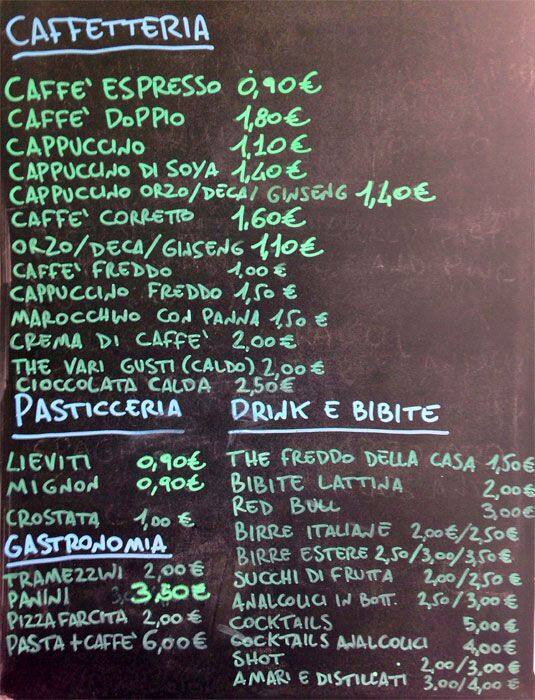 CAFFETTERIA
CAFFE' ESPRESSO 0,90€
CAFFE' DOPPIO 1,80€
CAPPUCCINO 1,10€
CAPPUCCINO DI SOYA 1,40€
CAPPUCCINO ORZO/DECA/GINSENG 1,40€
CAFFE' CORRETTO 1,60€
ORZO/DECA/GINSENG 1,10€
CAFFE' FREDDO 1,00€
CAPPUCCINO FREDDO 1,50€
MAROCCHINO CON PANNA 1,50€
CREMA DI CAFFE' 2,00€
THE VARI GUSTI (CALDO) 2,00€
CIOCCOLATA CALDA 2,50€
PASTICCERIA
LIEVITI 0,90€
MIGNON 0,90€
CROSTATA 1,00€
GASTRONOMIA
TRAMEZZINI 2,00€
PANINI 3,50€
PIZZA FARCITA 2,00€
PASTA+CAFFE' 6,00€
DRINK E BIBITE
THE FREDDO DELLA CASA 1,50€
BIBITE LATTINA 2,00€
RED BULL 3,00€
BIRRE ITALIANE 2,00€/2,50€
BIRRE ESTERE 2,50/3,00/3,50€
SUCCHI DI FRUTTA 2,00/2,50€
ANALCOLICI IN BOTT. 2,50/3,00€
COCKTAILS 5,00€
COCKTAILS ANALCOLICI 4,00€
SHOT 2,00/3,00€
AMARI E DISTILLATI 3,00/4,00€